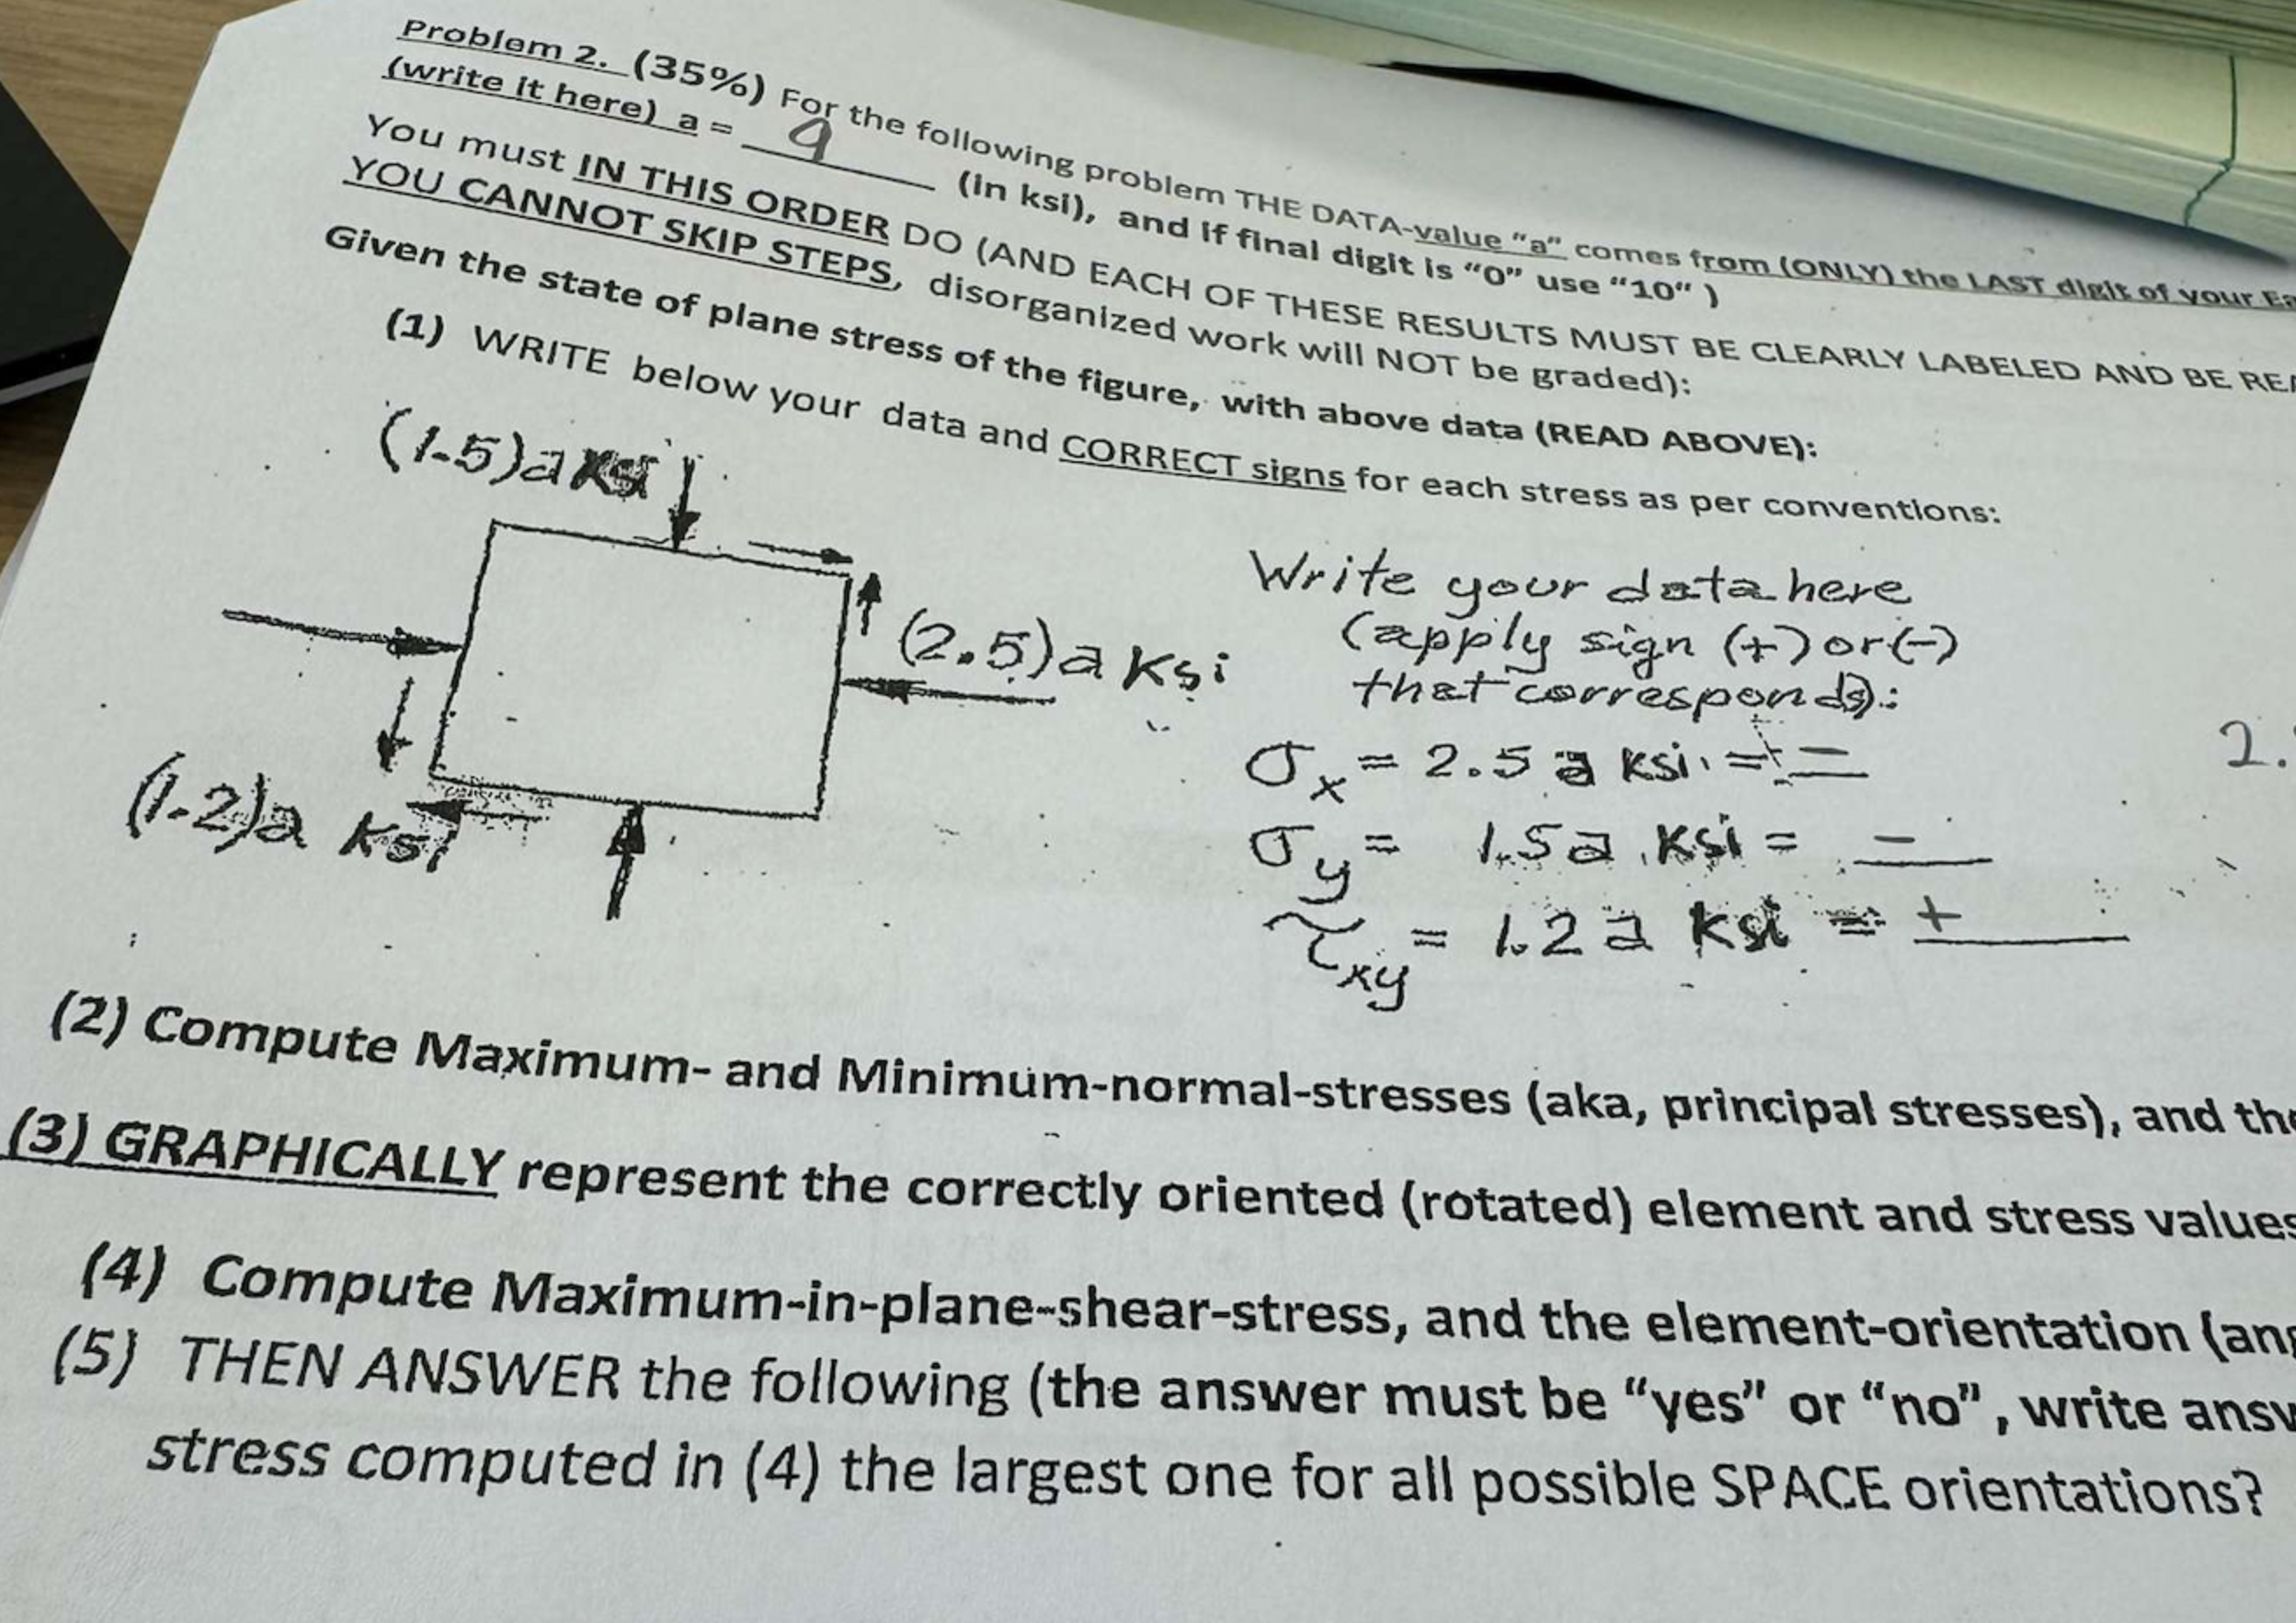 Problem 2. (35%) For the following problem THE DATA-value "a" comes from (ONLY) the LAST digit of your
(write it here) a = 9 (in ksi), and if final digit is "0" use "10" )
You must IN THIS ORDER DO (AND EACH OF THESE RESULTS MUST BE CLEARLY LABELED AND BE
YOU CANNOT SKIP STEPS, disorganized work will NOT be graded):
Given the state of plane stress of the figure, with above data (READ ABOVE):
(1) WRITE below your data and CORRECT signs for each stress as per conventions:
(1.5)a ksi
(2.5)a Ksi
(1.2)a ksi
Write your data here
(apply sign (+) or (-)
that corresponds):
σx = 2.5 a ksi = -
2.
σy = 1.5a ksi = -
τxy = 1.2 a ksi = +
(2) Compute Maximum- and Minimum-normal-stresses (aka, principal stresses), and the
(3) GRAPHICALLY represent the correctly oriented (rotated) element and stress values
(4) Compute Maximum-in-plane-shear-stress, and the element-orientation (ang
(5) THEN ANSWER the following (the answer must be "yes" or "no", write answ
stress computed in (4) the largest one for all possible SPACE orientations?